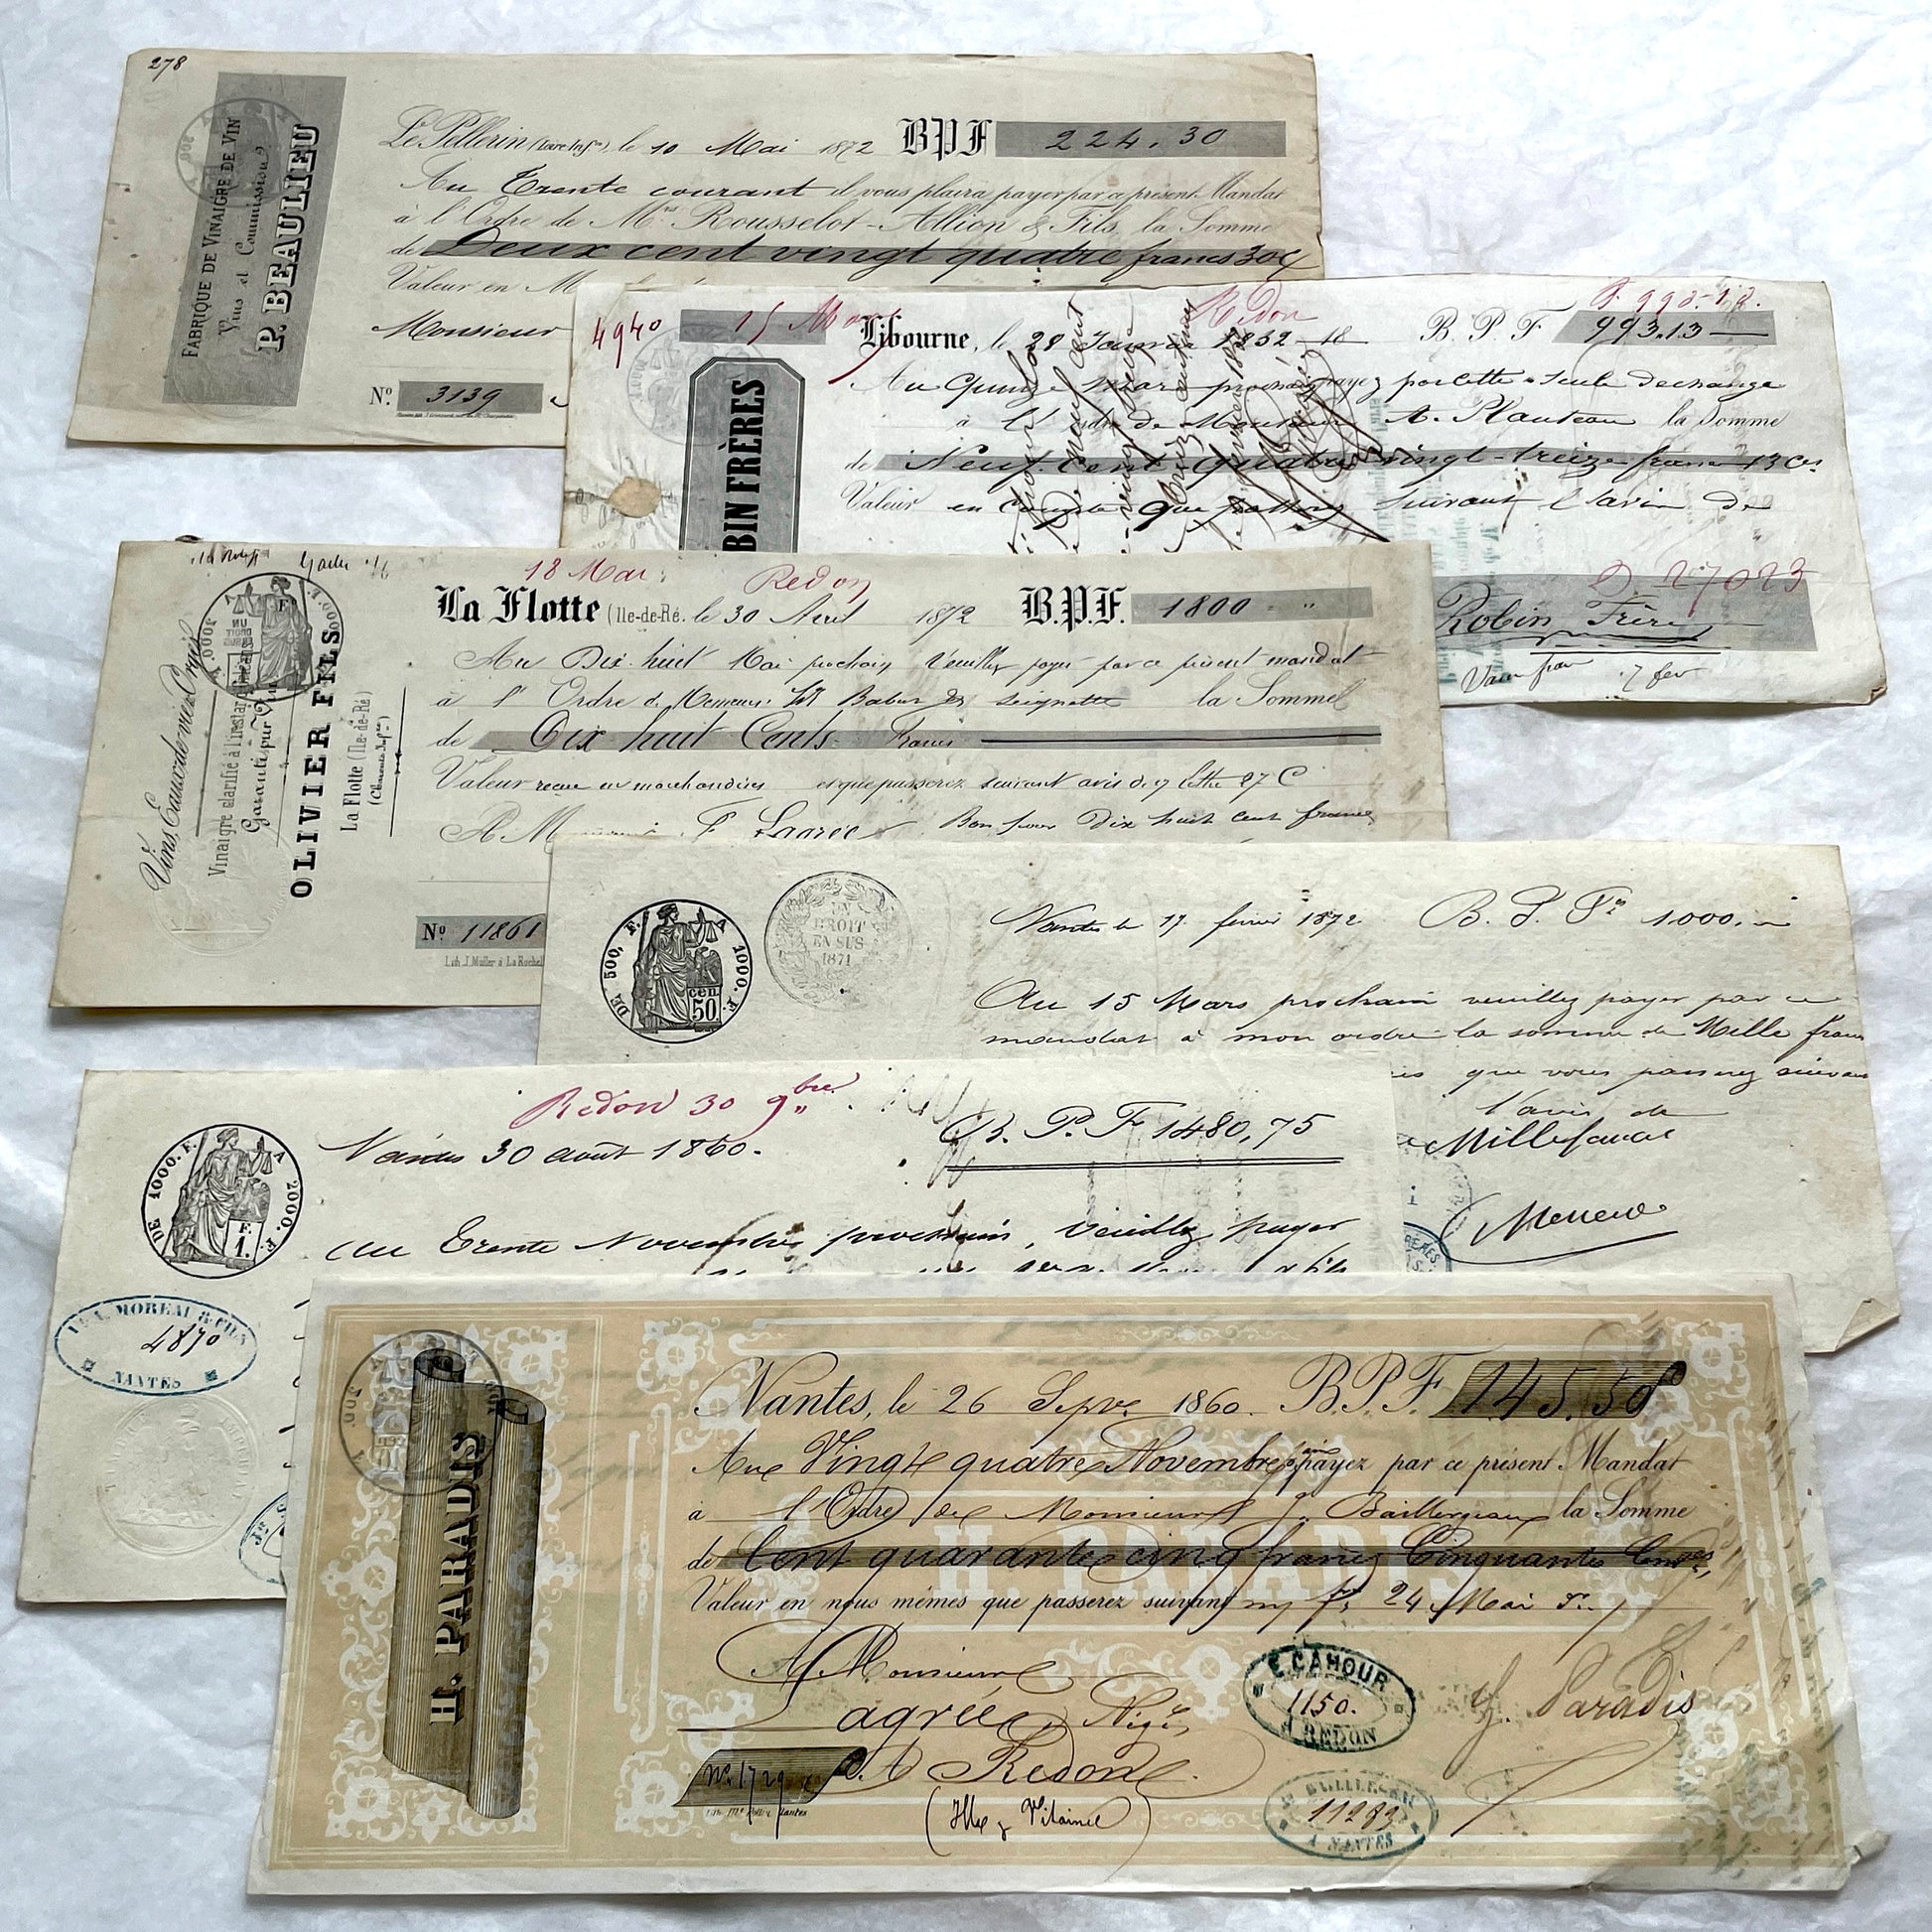 278
FABRIQUE DE VINAIGRE DE VIN
Vins et Commission
P. BEAULIEU
Le Pellerin (Loire Infre) le 10 Mai 1872 BPF 224.30
Au Trente courant il vous plaira payer par ce présent Mandat
à l'Ordre de Mrs Rousselot-Allion & Fils, la Somme
de Deux cent vingt quatre francs 30c
Valeur en M
Monsieur
No. 3139
4940 15 Mars Redon
Libourne, le 28 Janvier 1862 B. P. F 993.13
Au Quinze mars prochain payez par cette seule de change
à l'ordre de Monsieur A. Plauteau la Somme
de Neuf Cent Quatre vingt-treize francs 13 Ces
Valeur en Compte que passerez suivant l'avis de
BIN FRÈRES
27023
Robin Frères
7 fev
18 Mai Redon
La Flotte (Ile-de-Ré. le 30 Avril 1872 B.P.F. 1800 "
Au Dix huit Mai prochain Veuillez payer par ce présent mandat
à l'Ordre de Messieurs Babut Seignette la Somme
de Dix huit Cents Francs
Valeur reçue en marchandises et que passerez suivant avis de
A M F Lagrée Bon pour Dix huit cent francs
Vins, Eaux-de-vie
Vinaigre clarifié à l'instar
Garanti pur Vin
OLIVIER FILS
La Flotte (Ile-de-Ré)
(Charente Infre)
No 11861
Lith. J. Muller à La Rochel
DE 500. F. A 1000. F.
cen. 50.
UN
DROIT
EN SUS
1871
Nantes le 17 février 1872 B. P. Fs 1000.
Au 15 Mars prochain veuillez payer par ce
mandat à mon ordre la somme de Mille francs
que vous passerez suivant
l'avis de
Redon 30 9bre
DE 1000. F. A 2000. F.
F. 1.
Nantes 30 août 1860. B. P. F. 1480,75
Au Trente Novembre prochain, veuillez payer
MOREAU & FILS
4870
NANTES
H. PARADIS
Nantes, le 26 Sepre 1860. B.P.F. 145.50
Au Vingt quatre Novembre pain payez par ce présent Mandat
à l'Ordre de Monsieur J. Baillergeau la Somme
de Cent quarante cinq francs Cinquante Cenmes,
Valeur en nous mêmes que passerez suivant 24 Mai
H. PARADIS
A Monsieur
Lagrée, Négt
No. 1729 à Redon
(Ille & Vilaine)
E. CAHOUR
1150.
A REDON
H. Paradis
11289
A NANTES